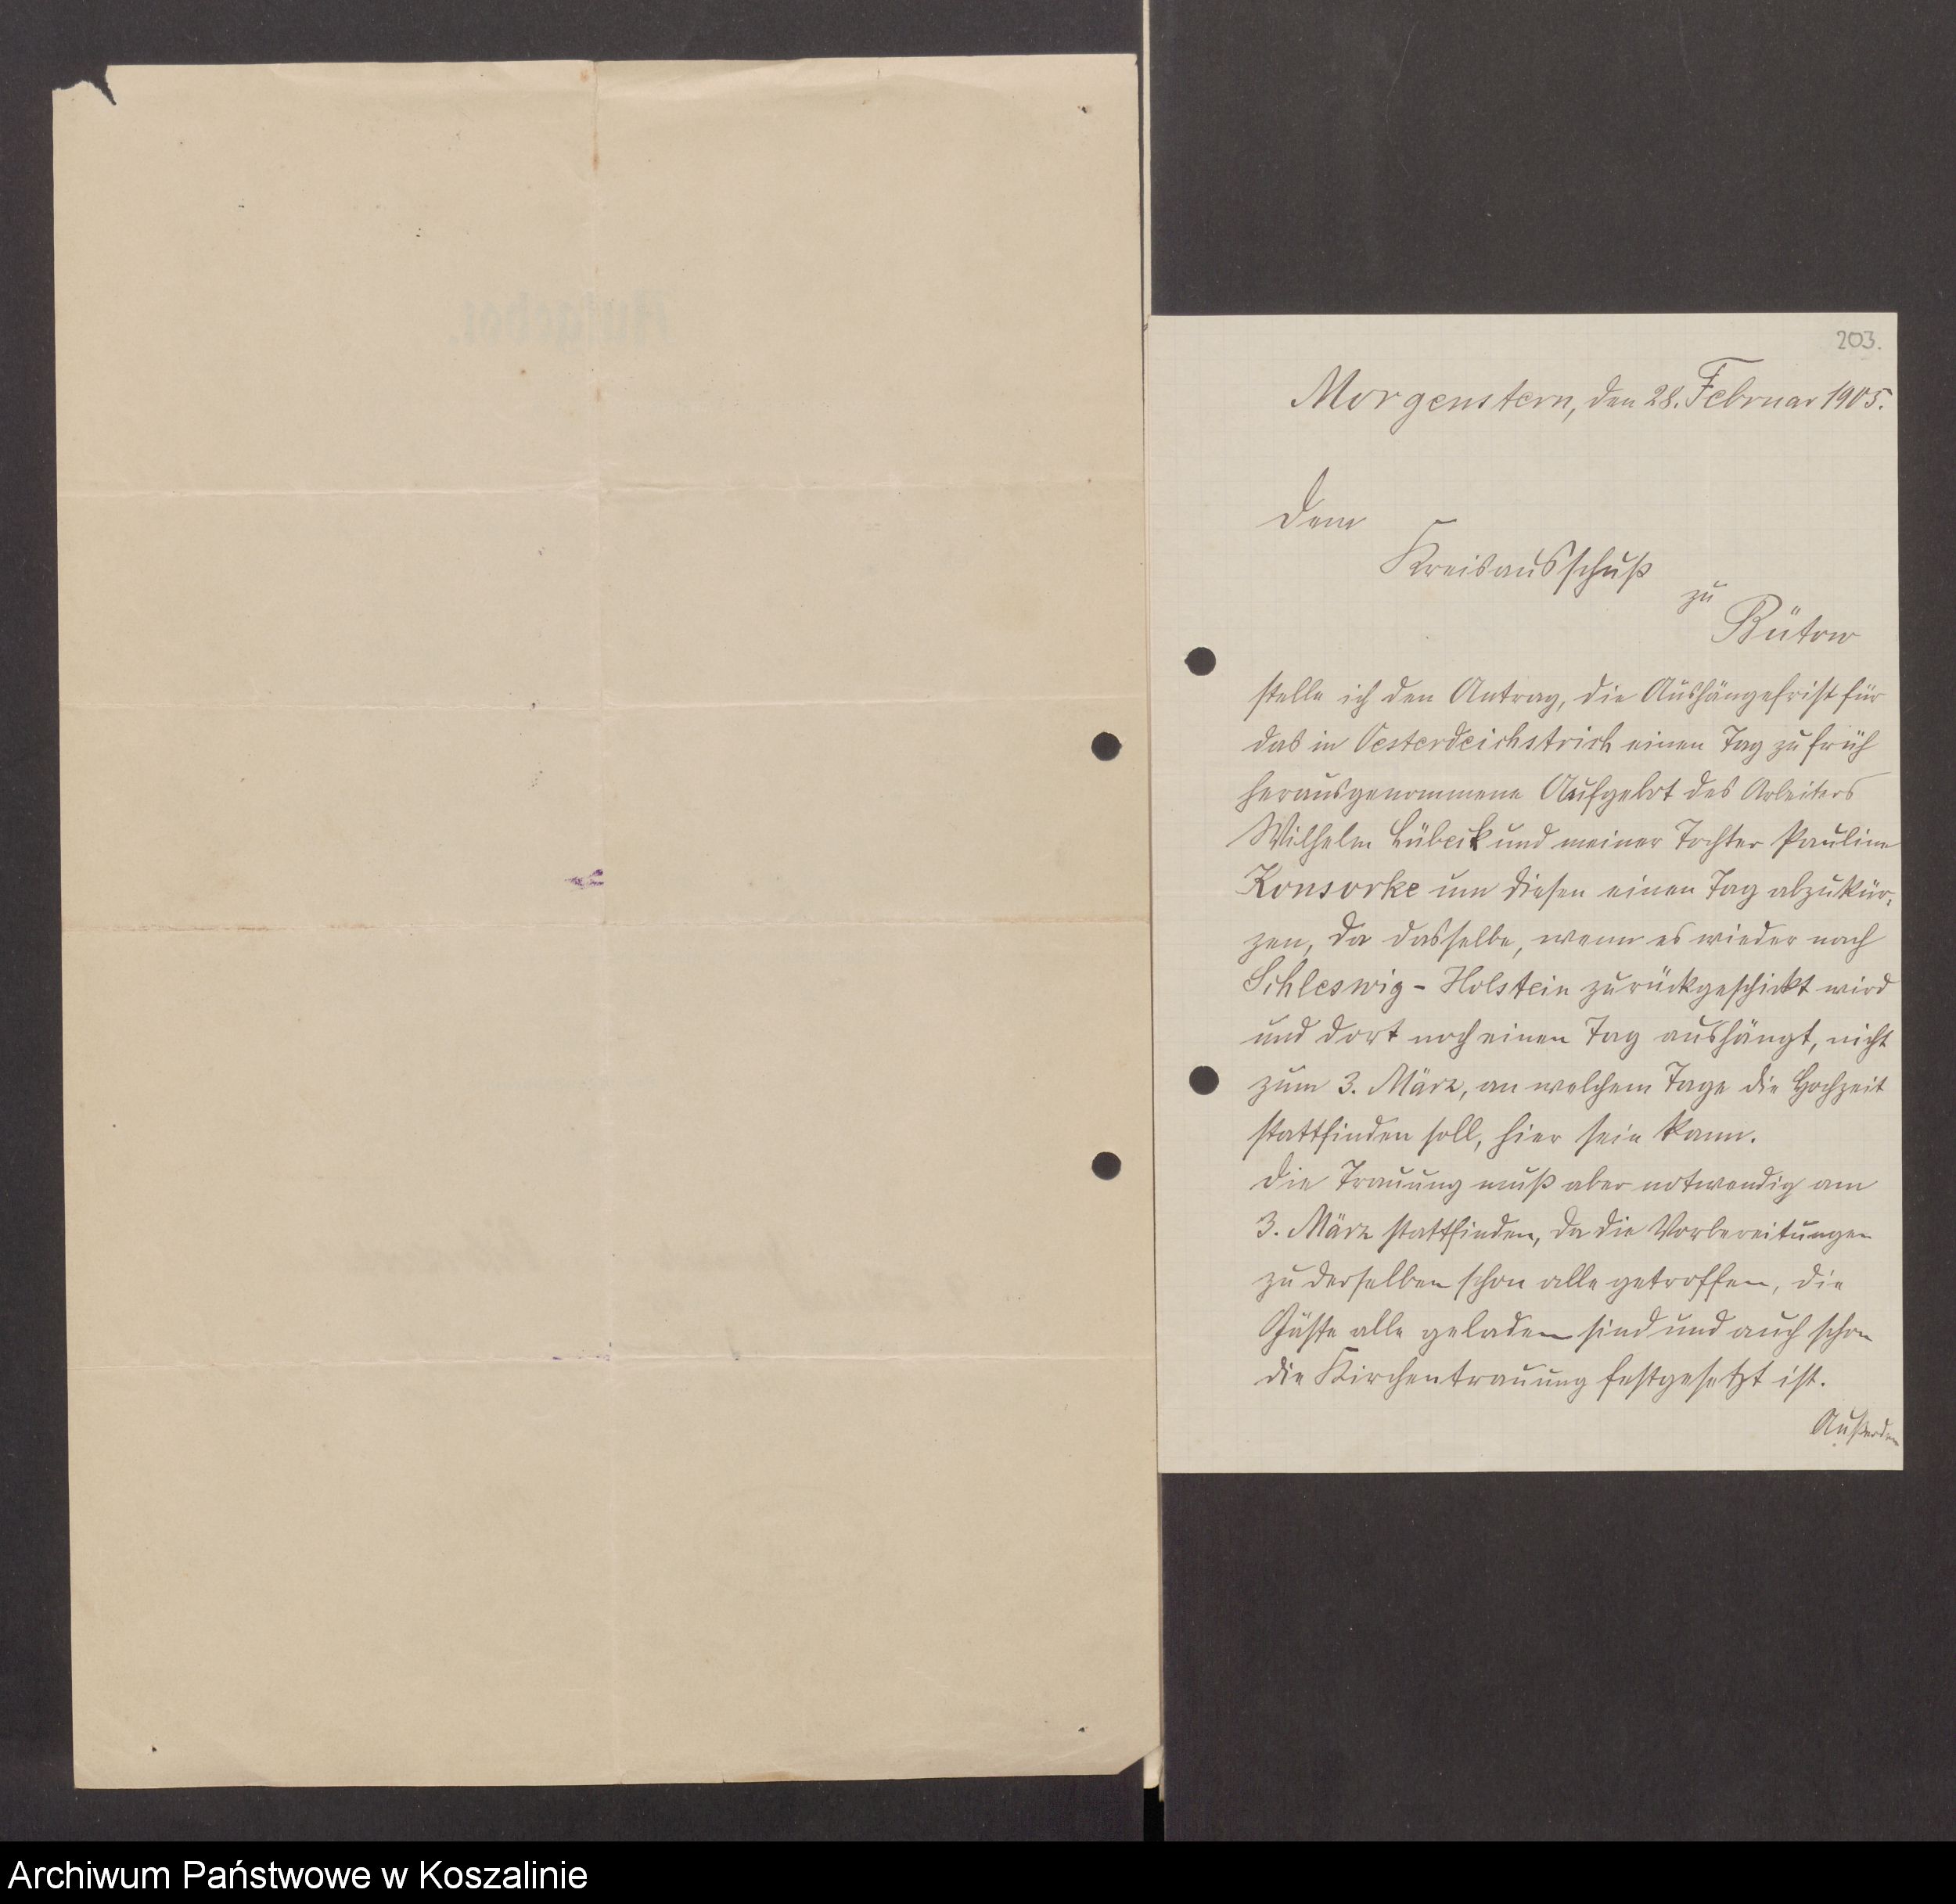 203.
Morgenstern, den 28. Februar 1905.
Dem
Kreisausschuß
zu
Bütow
stelle ich den Antrag, die Aushängefrist für
das in Oesterdeichstrich einen Tag zu früh
herausgenommene Aufgebot des Arbeiters
Wilhelm Lübeck und meiner Tochter Pauline
Konsorke um diesen einen Tag abzukür-
zen, da dasselbe, wenn es wieder nach
Schleswig-Holstein zurückgeschickt wird
und dort noch einen Tag aushängt, nicht
zum 3. März, an welchem Tage die Hochzeit
stattfinden soll, hier sein kann.
Die Trauung muß aber notwendig am
3. März stattfinden, da die Vorbereitungen
zu derselben schon alle getroffen, die
Gäste alle geladen sind und auch schon
die Kirchentrauung festgesetzt ist.
Außerdem
Archiwum Państwowe w Koszalinie